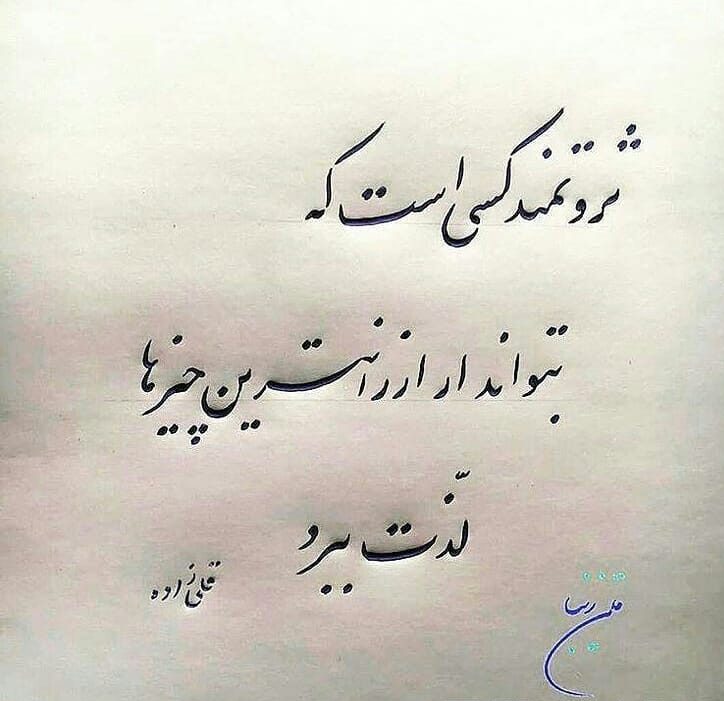 ثروتمند کسی است که
بتواند از ارزانترین چیزها
لذّت ببرد
قلی‌زاده
متن زیبا